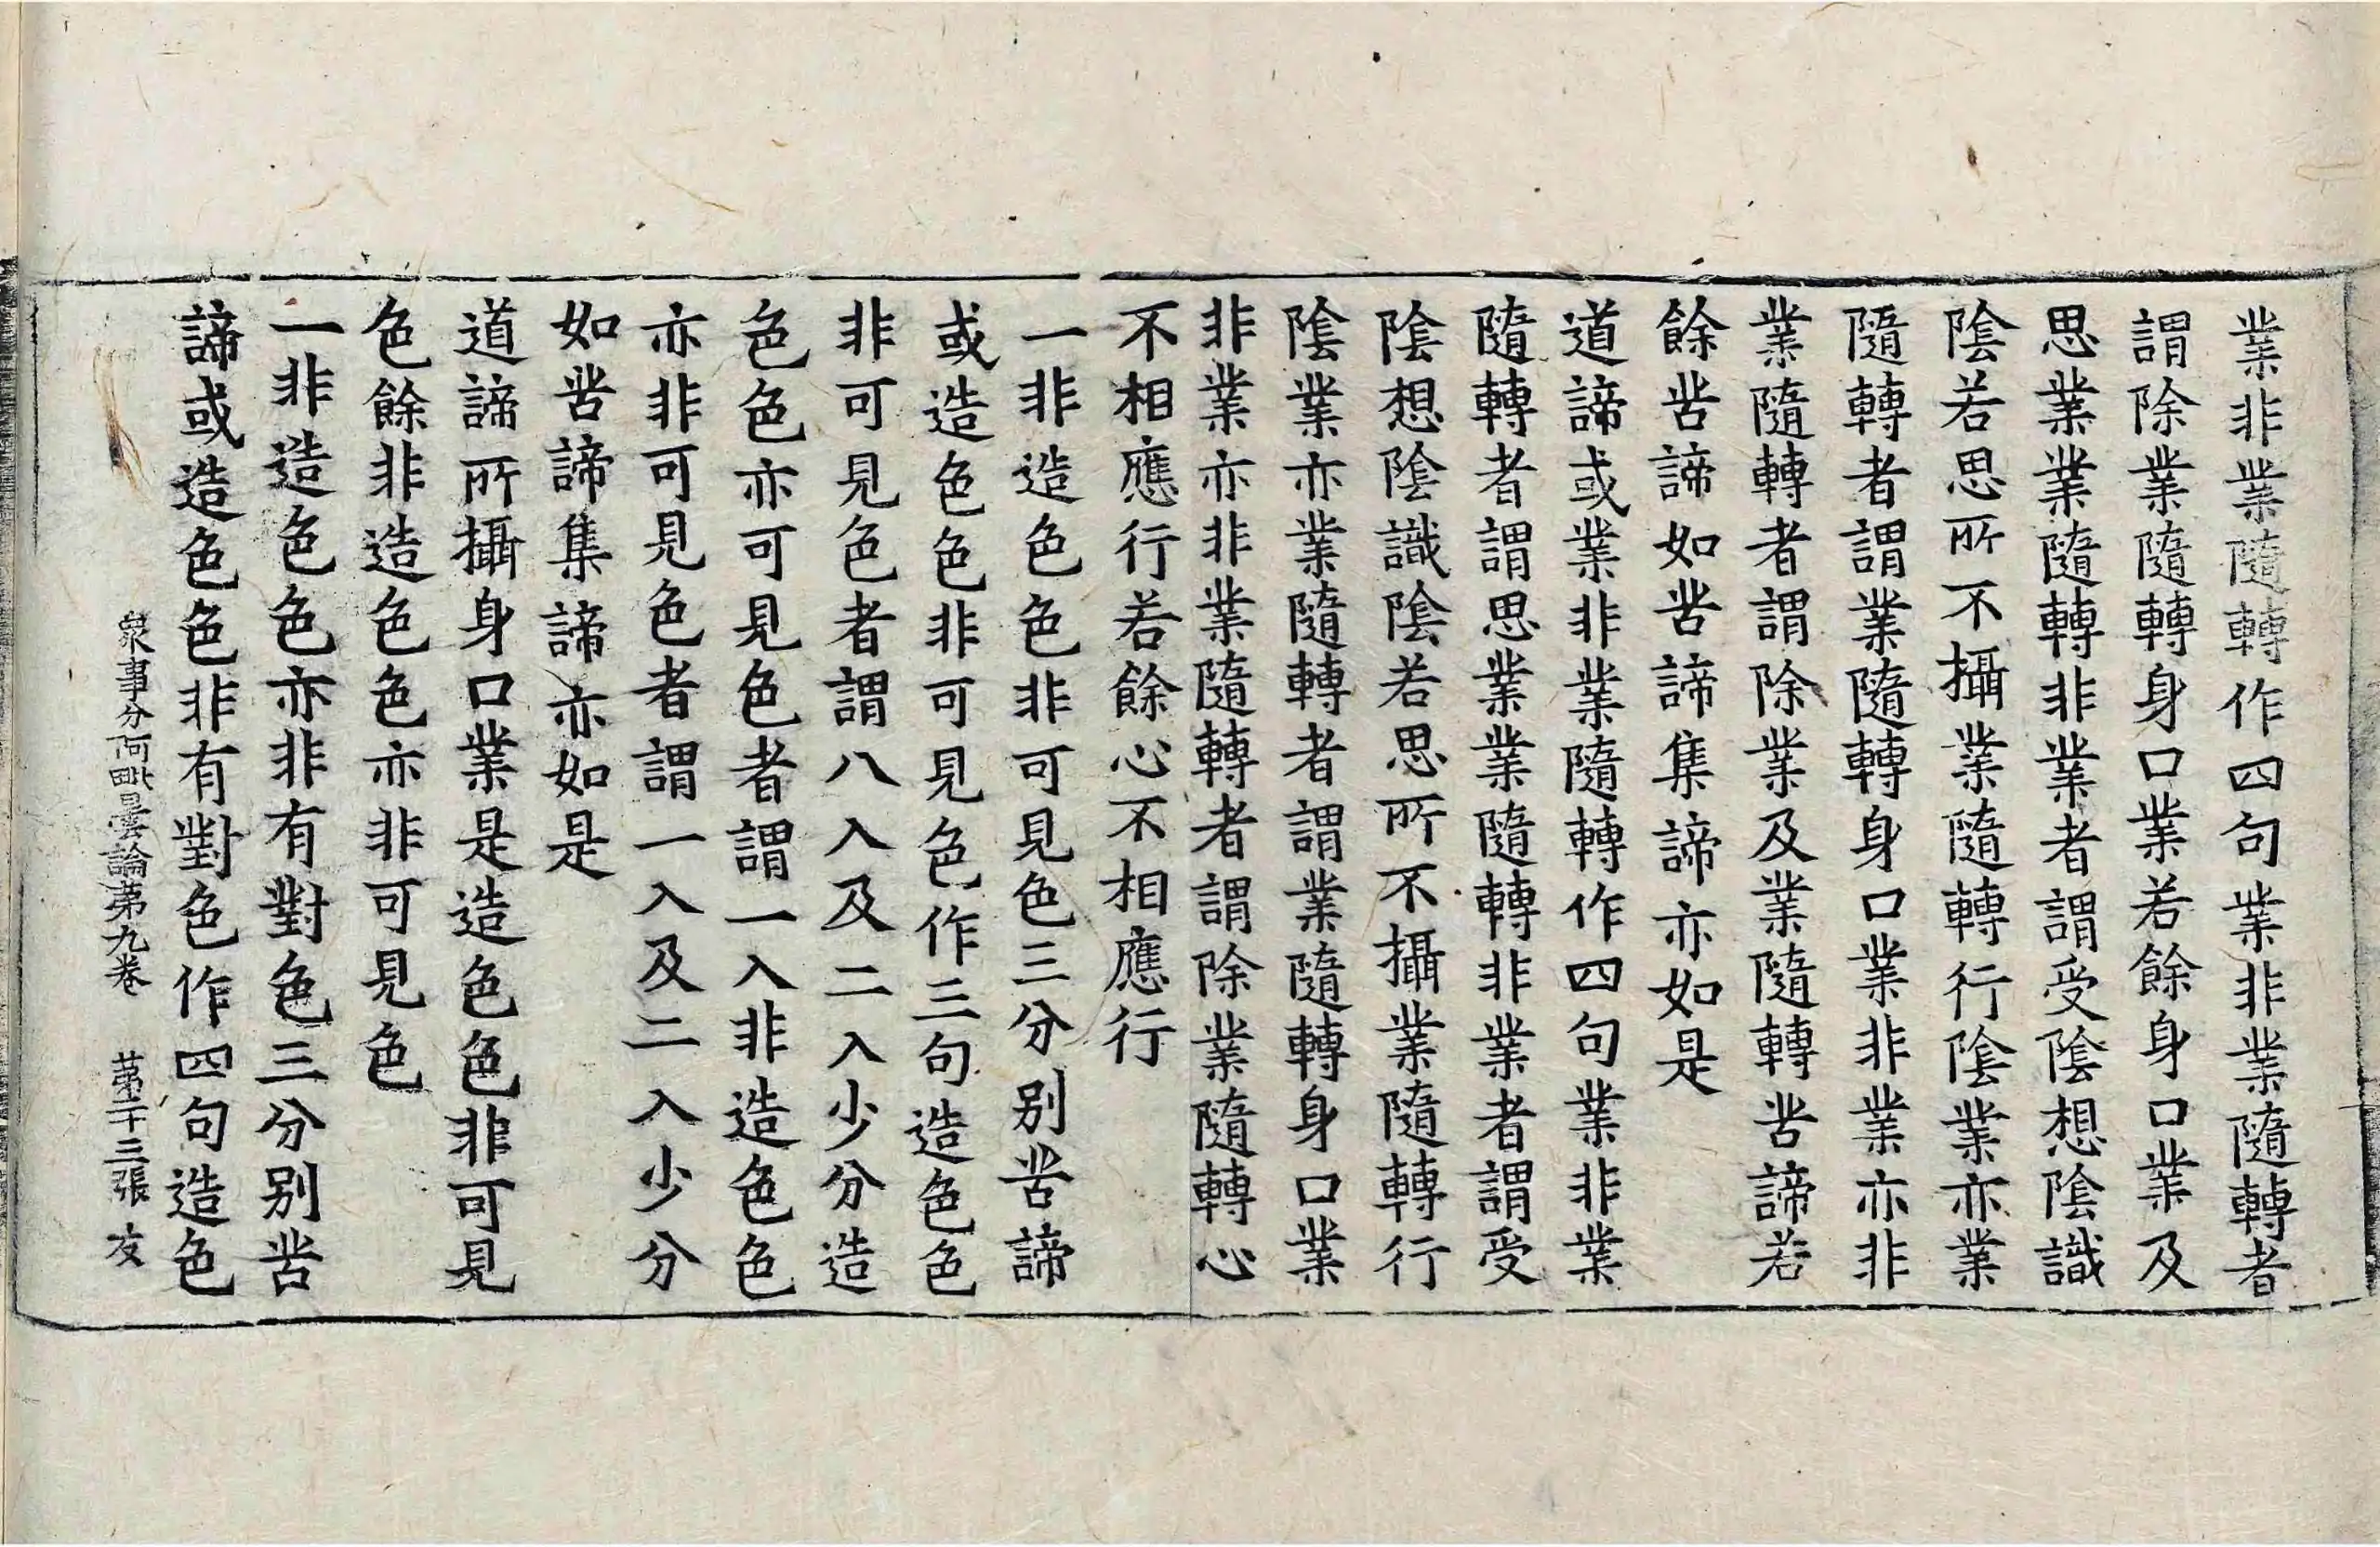 業非業隨轉作四句業非業隨轉者
謂除業隨轉身口業若餘身口業及
思業業隨轉非業者謂受陰想陰識
陰若思所不攝業隨轉行陰業亦業
隨轉者謂業隨轉身口業非業亦非
業隨轉者謂除業及業隨轉苦諦若
餘苦諦如苦諦集諦亦如是
道諦或業非業隨轉作四句業非業
隨轉者謂思業業隨轉非業者謂受
陰想陰識陰若思所不攝業隨轉行
陰業亦業隨轉者謂業隨轉身口業
非業亦非業隨轉者謂除業隨轉心
不相應行若餘心不相應行
一非造色色非可見色三分別苦諦
或造色色非可見色作三句造色色
非可見色者謂八入及二入少分造
色色亦可見色者謂一入非造色色
亦非可見色者謂一入及二入少分
如苦諦集諦亦如是
道諦所攝身口業是造色色非可見
色餘非造色色亦非可見色
一非造色色亦非有對色三分別苦
諦或造色色非有對色作四句造色
衆事分阿毗曇論第九卷 第二十三張 友